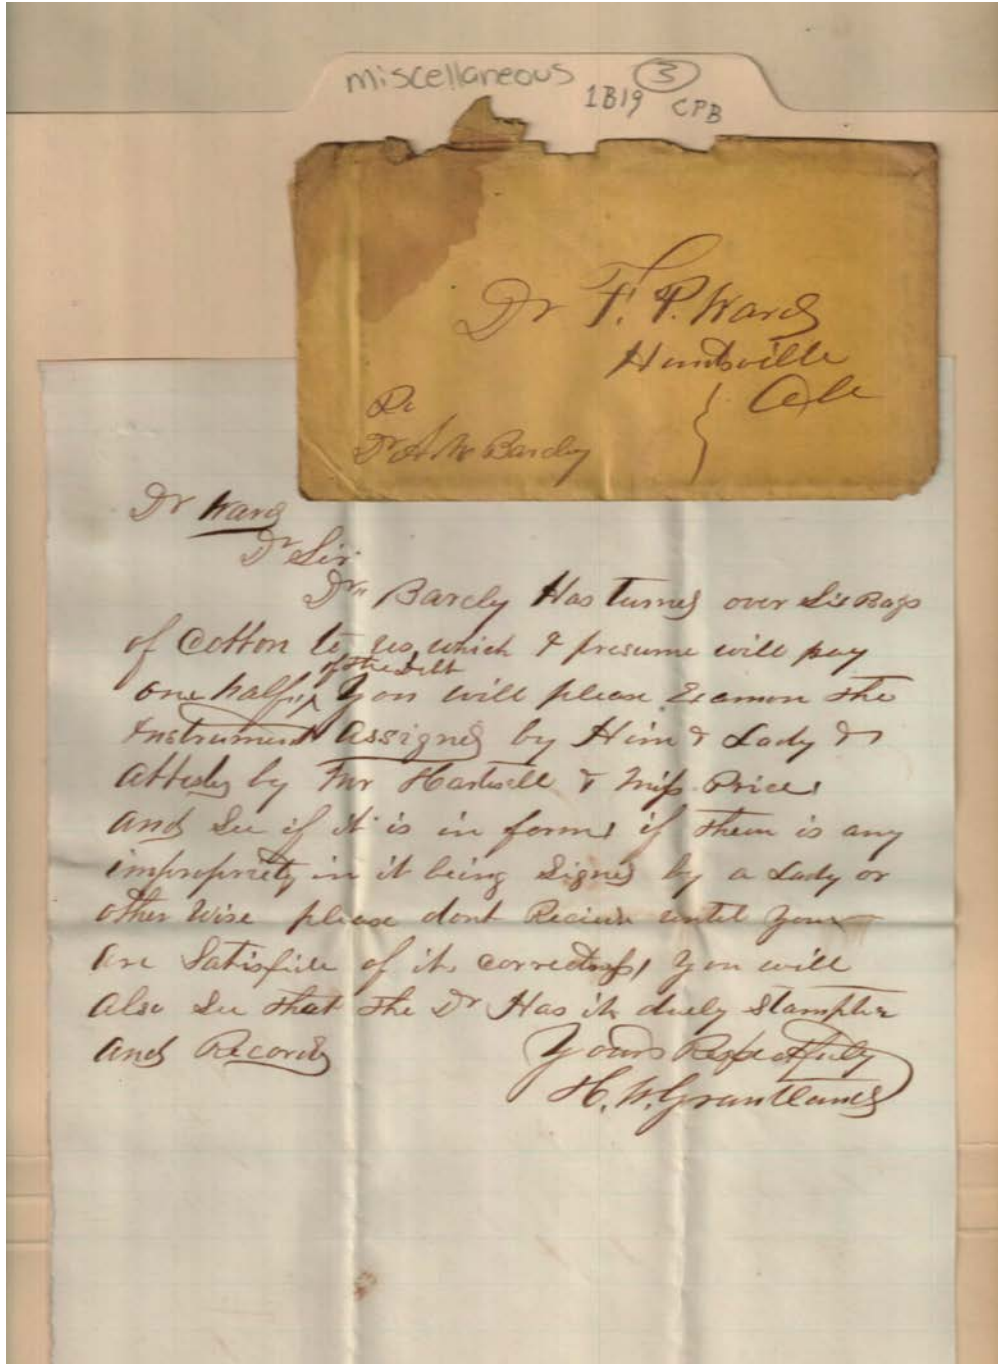 miscellaneous 3
1B19 CPB
Dr F. P. Ward
Huntsville
Ala
Dr A W Barcly
Dr Ward
Dr Sir
Dr Barcly Has turned over Six Bags
of Cotton to us which I presume will pay
of the debt
one half, You will please Examon the
Instrument Assigned by Him & Lady &
Attested by Mr Hartwell & Miss Price
And See if it is in form if them is any
impropriety in it being Signed by a Lady or
other Wise please dont Recieve until you
are Satisfide of its correctness, You will
Also See that the Dr Has it duely Stampted
And Record
Yours Respectfuly
H. W. Grantland